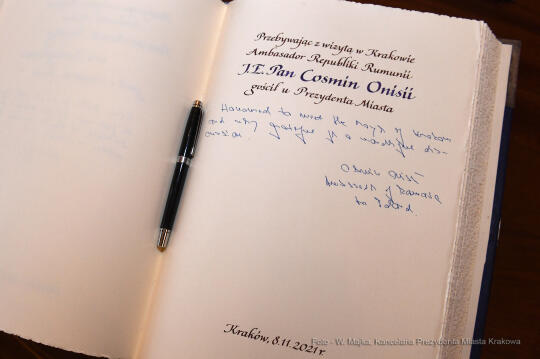 Przebywając z wizytą w Krakowie
Ambasador Republiki Rumunii
J.E. Pan Cosmin Onisii
gościł u Prezydenta Miasta
Honoured to meet the Mayor of Krakow
and very grateful for a wonderful dis-
cussion.
Cosmin Onisii
Ambassador of Romania
to Poland.
Kraków, 8.11.2021 r.
Foto - W. Majka, Kancelaria Prezydenta Miasta Krakowa